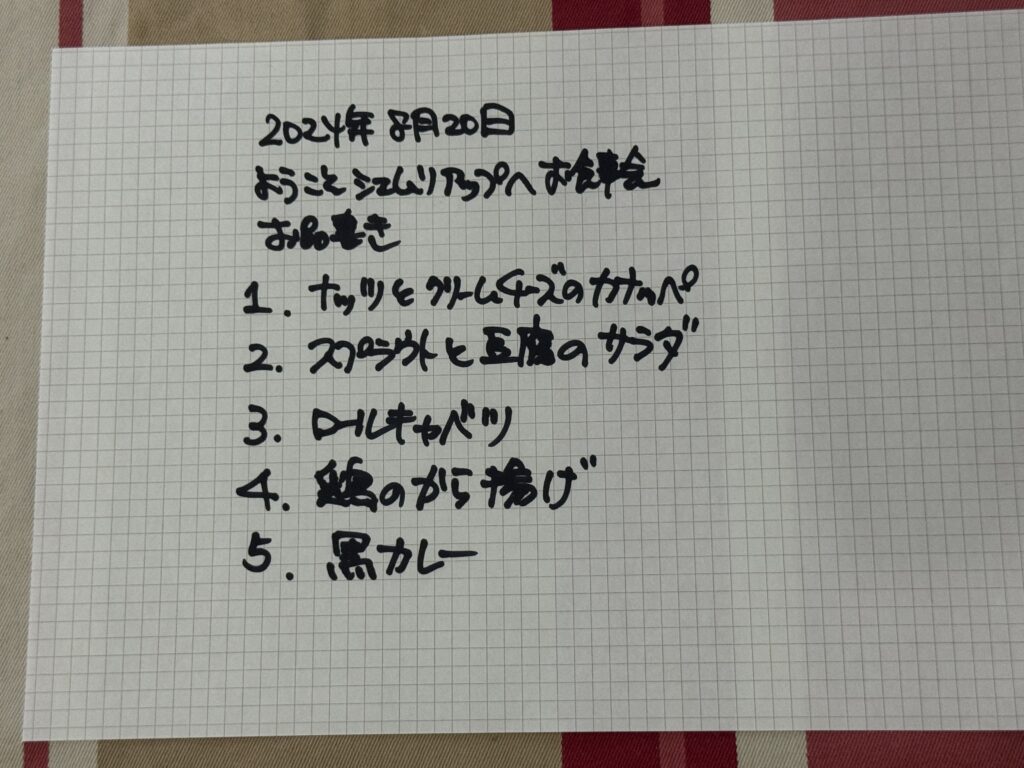 2024年8月20日
ようこそシェムリアップへお食事会
お品書き
1. ナッツとクリームチーズのカナッペ
2. スプラウトと豆腐のサラダ
3. ロールキャベツ
4. のから揚げ
5. 黒カレー